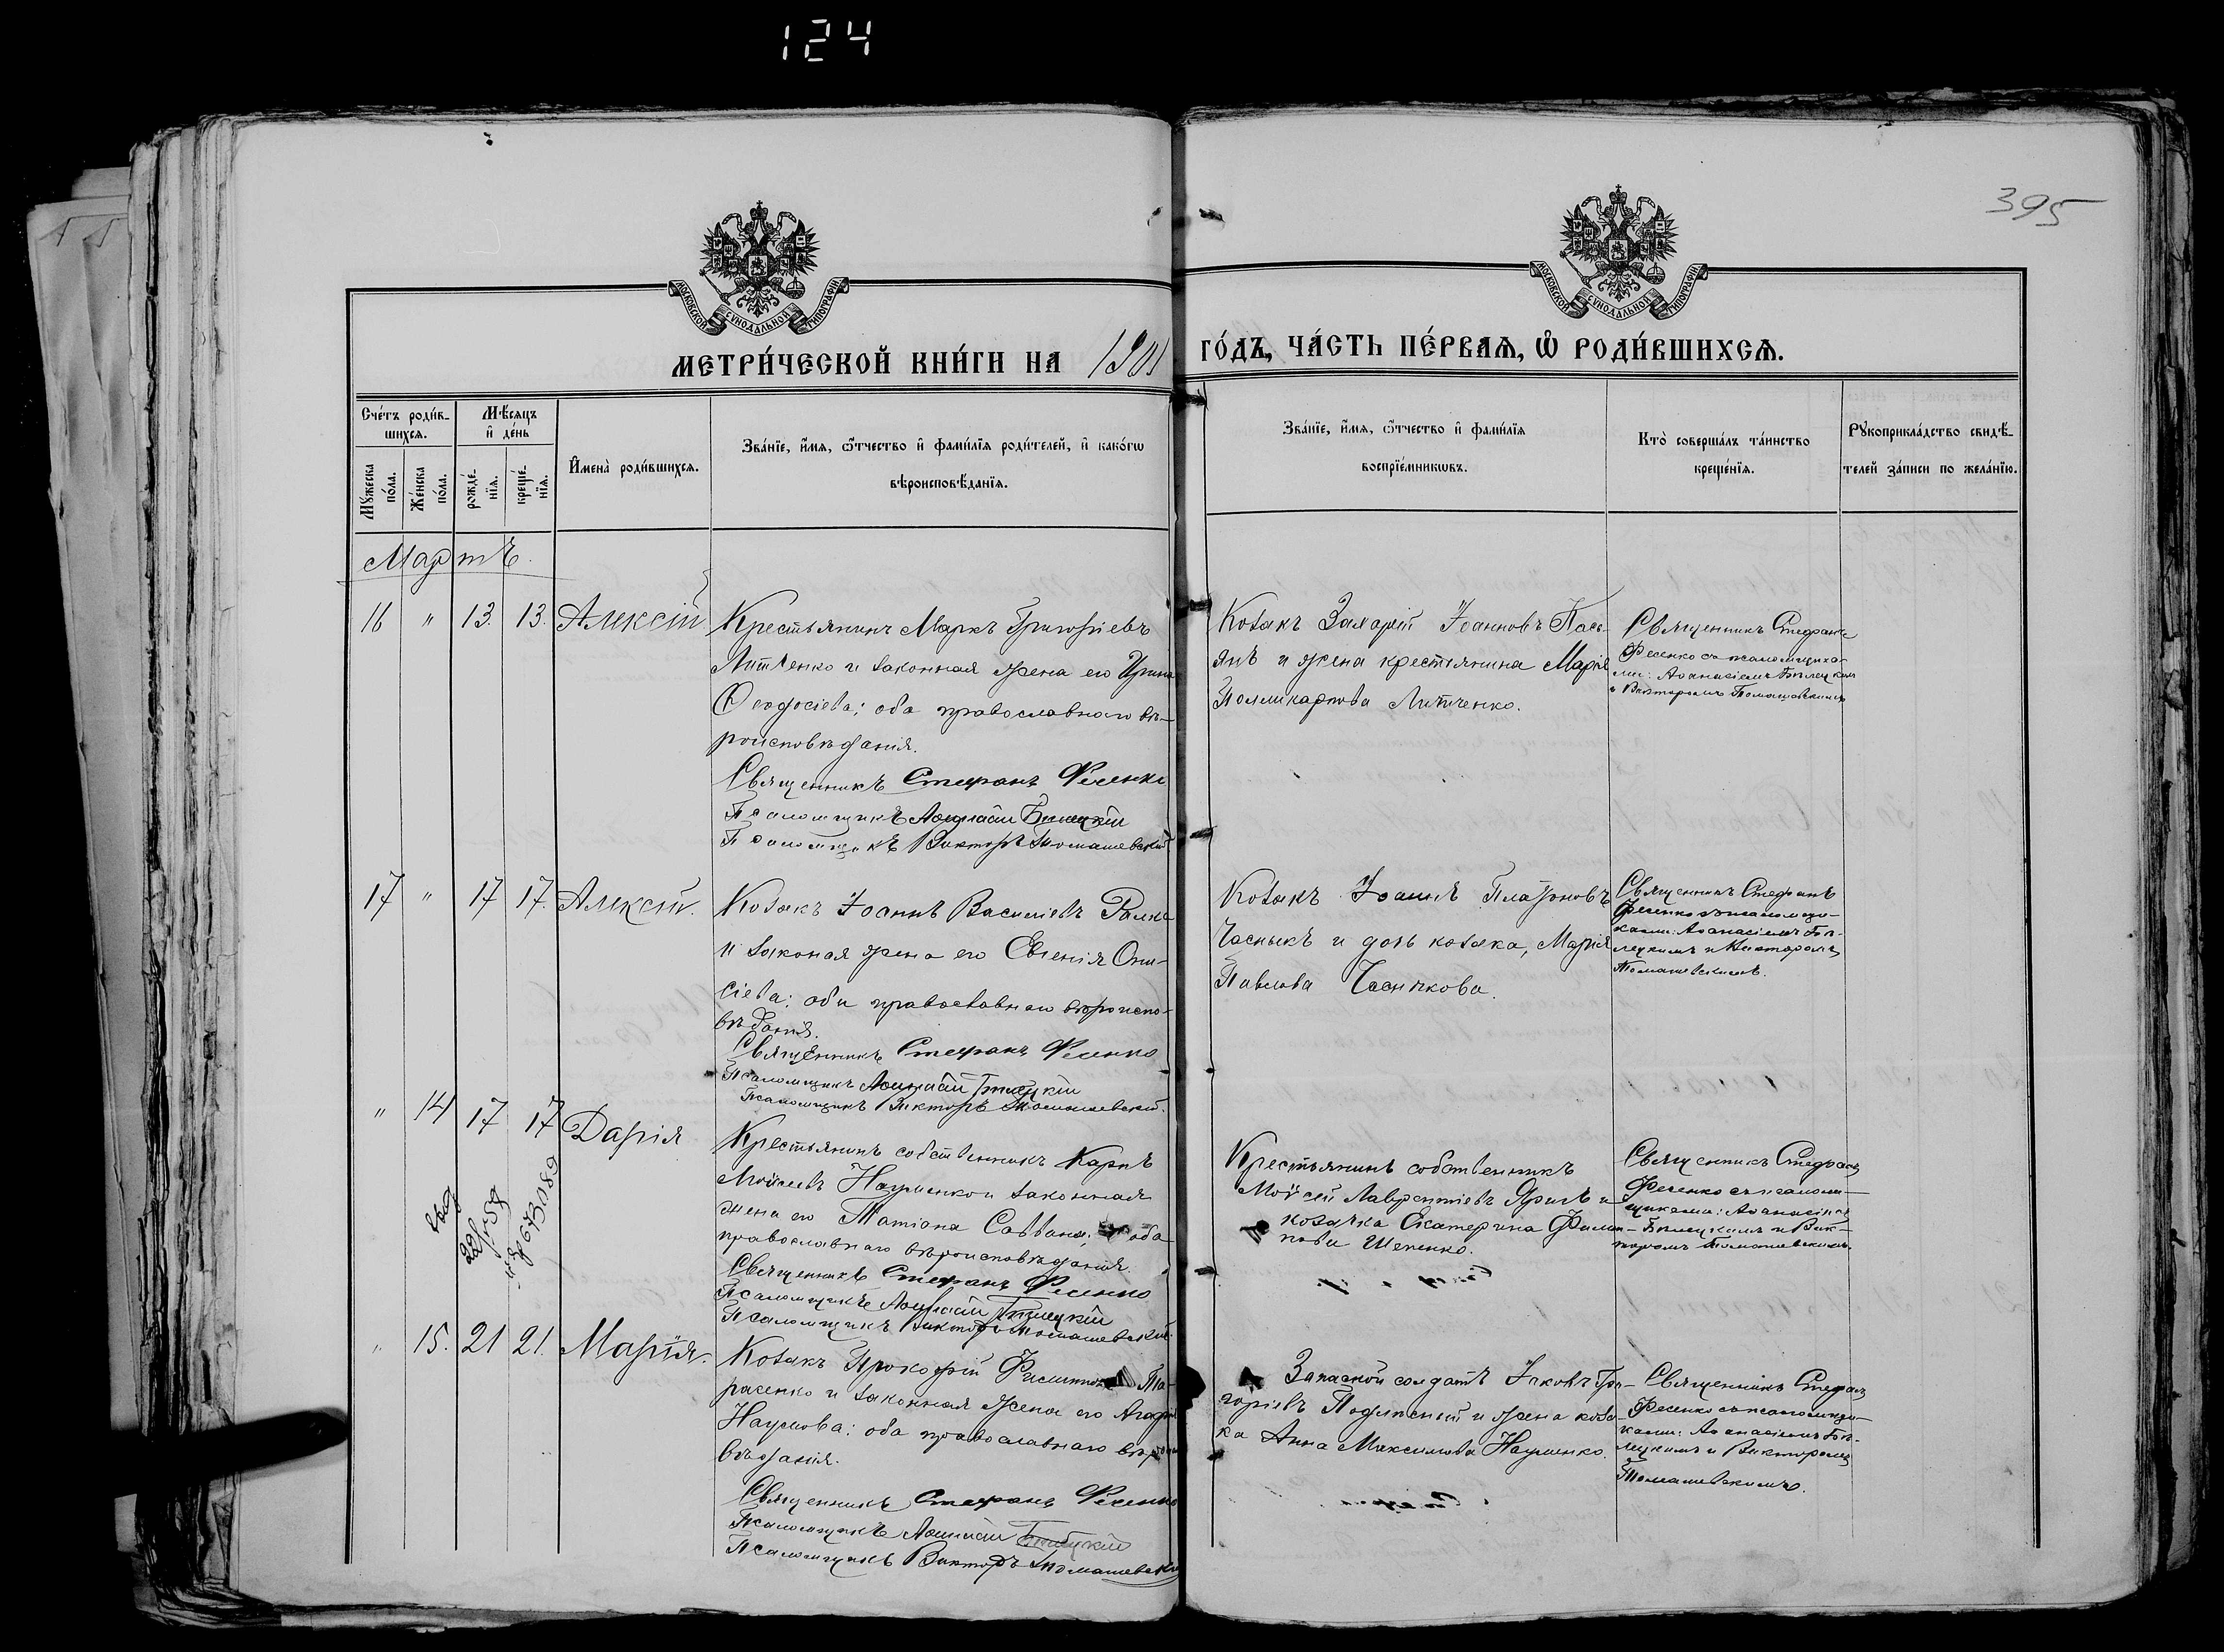 124
395
МОСКОВСКОЙ СѴНОДАЛЬНОЙ ТИПОГРАФІИ
МОСКОВСКОЙ СѴНОДАЛЬНОЙ ТИПОГРАФІИ
МЕТРИ́ЧЕСКОЙ КНИ́ГИ НА 1901
ГО́ДЪ, ЧА́СТЬ ПЕ́РВАѦ, Ѡ РОДИ́ВШИХСѦ.
Сче́тъ роди́в-
шихсѧ.
Мѣ́сѧцъ
и҆ де́нь
Мꙋ́жеска по́ла.
Же́нска по́ла.
рожде́-
нїѧ.
креще́-
нїѧ.
И҆мена̀ роди́вшихсѧ.
Зва́нїе, и҆́мѧ, ѻ҆́тчество и҆ фами́лїѧ роди́телей, и҆ како́гѡ
вѣроисповѣ́данїѧ.
Зва́нїе, и҆́мѧ, ѻ҆́тчество и҆ фами́лїѧ
воспрїе́мникѡвъ.
Кто̀ соверша́лъ та́инство
креще́нїѧ.
Рꙋкоприкла́дство свидѣ́-
телей за́писи по жела́нїю.
Мартъ.
16 " 13. 13. Алексій
Крестьянинъ Маркъ Григоріевъ
Литченко и законная жена его Ирина
Ѳеодосіева; оба православнаго вѣ-
роисповѣданія.
Священникъ Стефанъ Фесенко
Псаломщикъ Аѳанасій Бѣлецкій
Псаломщикъ Викторъ Томашевскій
Козакъ Захарій Іоанновъ Пась-
и жена крестьянина Марія
Поликарпова Литченко.
Священникъ Стефанъ
Фесенко съ псаломщика-
ми: Аѳанасіемъ Бѣлецкимъ
и Викторомъ Томашевскимъ
17 " 17 17. Алексій.
Козакъ Іоаннъ Василіевъ
и законая жена его Евгенія Они-
сіева; оба православнаго вѣроиспо-
вѣданія.
Священникъ Стефанъ Фесенко
Псаломщикъ Аѳанасій Бѣлецкій
Псаломщикъ Викторъ Томашевскій.
Козакъ Іоаннъ Платоновъ
Часныкъ и дочь козака, Марія
Павлова Часныкова.
Священникъ Стефанъ
Фесенко съ псаломщи-
ками: Аѳанасіемъ Бѣ-
лецкимъ и Викторомъ
Томашевскимъ.
" 14 17 17 Дарія
Крестьянинъ собственникъ Карпъ
Моѵсеевъ Науменко и законная
жена его Татіана Саввина; оба
православнаго вѣроисповѣданія.
Священникъ Стефанъ Фесенко
Псаломщикъ Аѳанасій Бѣлецкій
Псаломщикъ Викторъ Томашевскій.
Крестьянинъ собственникъ
Моѵсей Лаврентіевъ и
козачка Екатерина Филип-
пова Шепенко.
Священникъ Стефанъ
Фесенко съ псалом-
щиками: Аѳанасіемъ
Бѣлецкимъ и Вик-
торомъ Томашевскимъ.
" 15. 21 21. Марія.
Козакъ Прокофій Та-
расенко и законная жена его Агафія
Наумова: оба православнаго вѣроиспо-
вѣданія.
Священникъ Стефанъ Фесенко
Псаломщикъ Аѳанасій Бѣлецкій
Псаломщикъ Викторъ Томашевскій
Запасной солдатъ Іаковъ Гри-
горіевъ и жена коза-
ка Анна Максимова Науменко.
Священникъ Стефанъ
Фесенко съ псаломщи-
ками: Аѳанасіемъ Бѣ-
лецкимъ и Викторомъ
Томашевскимъ.